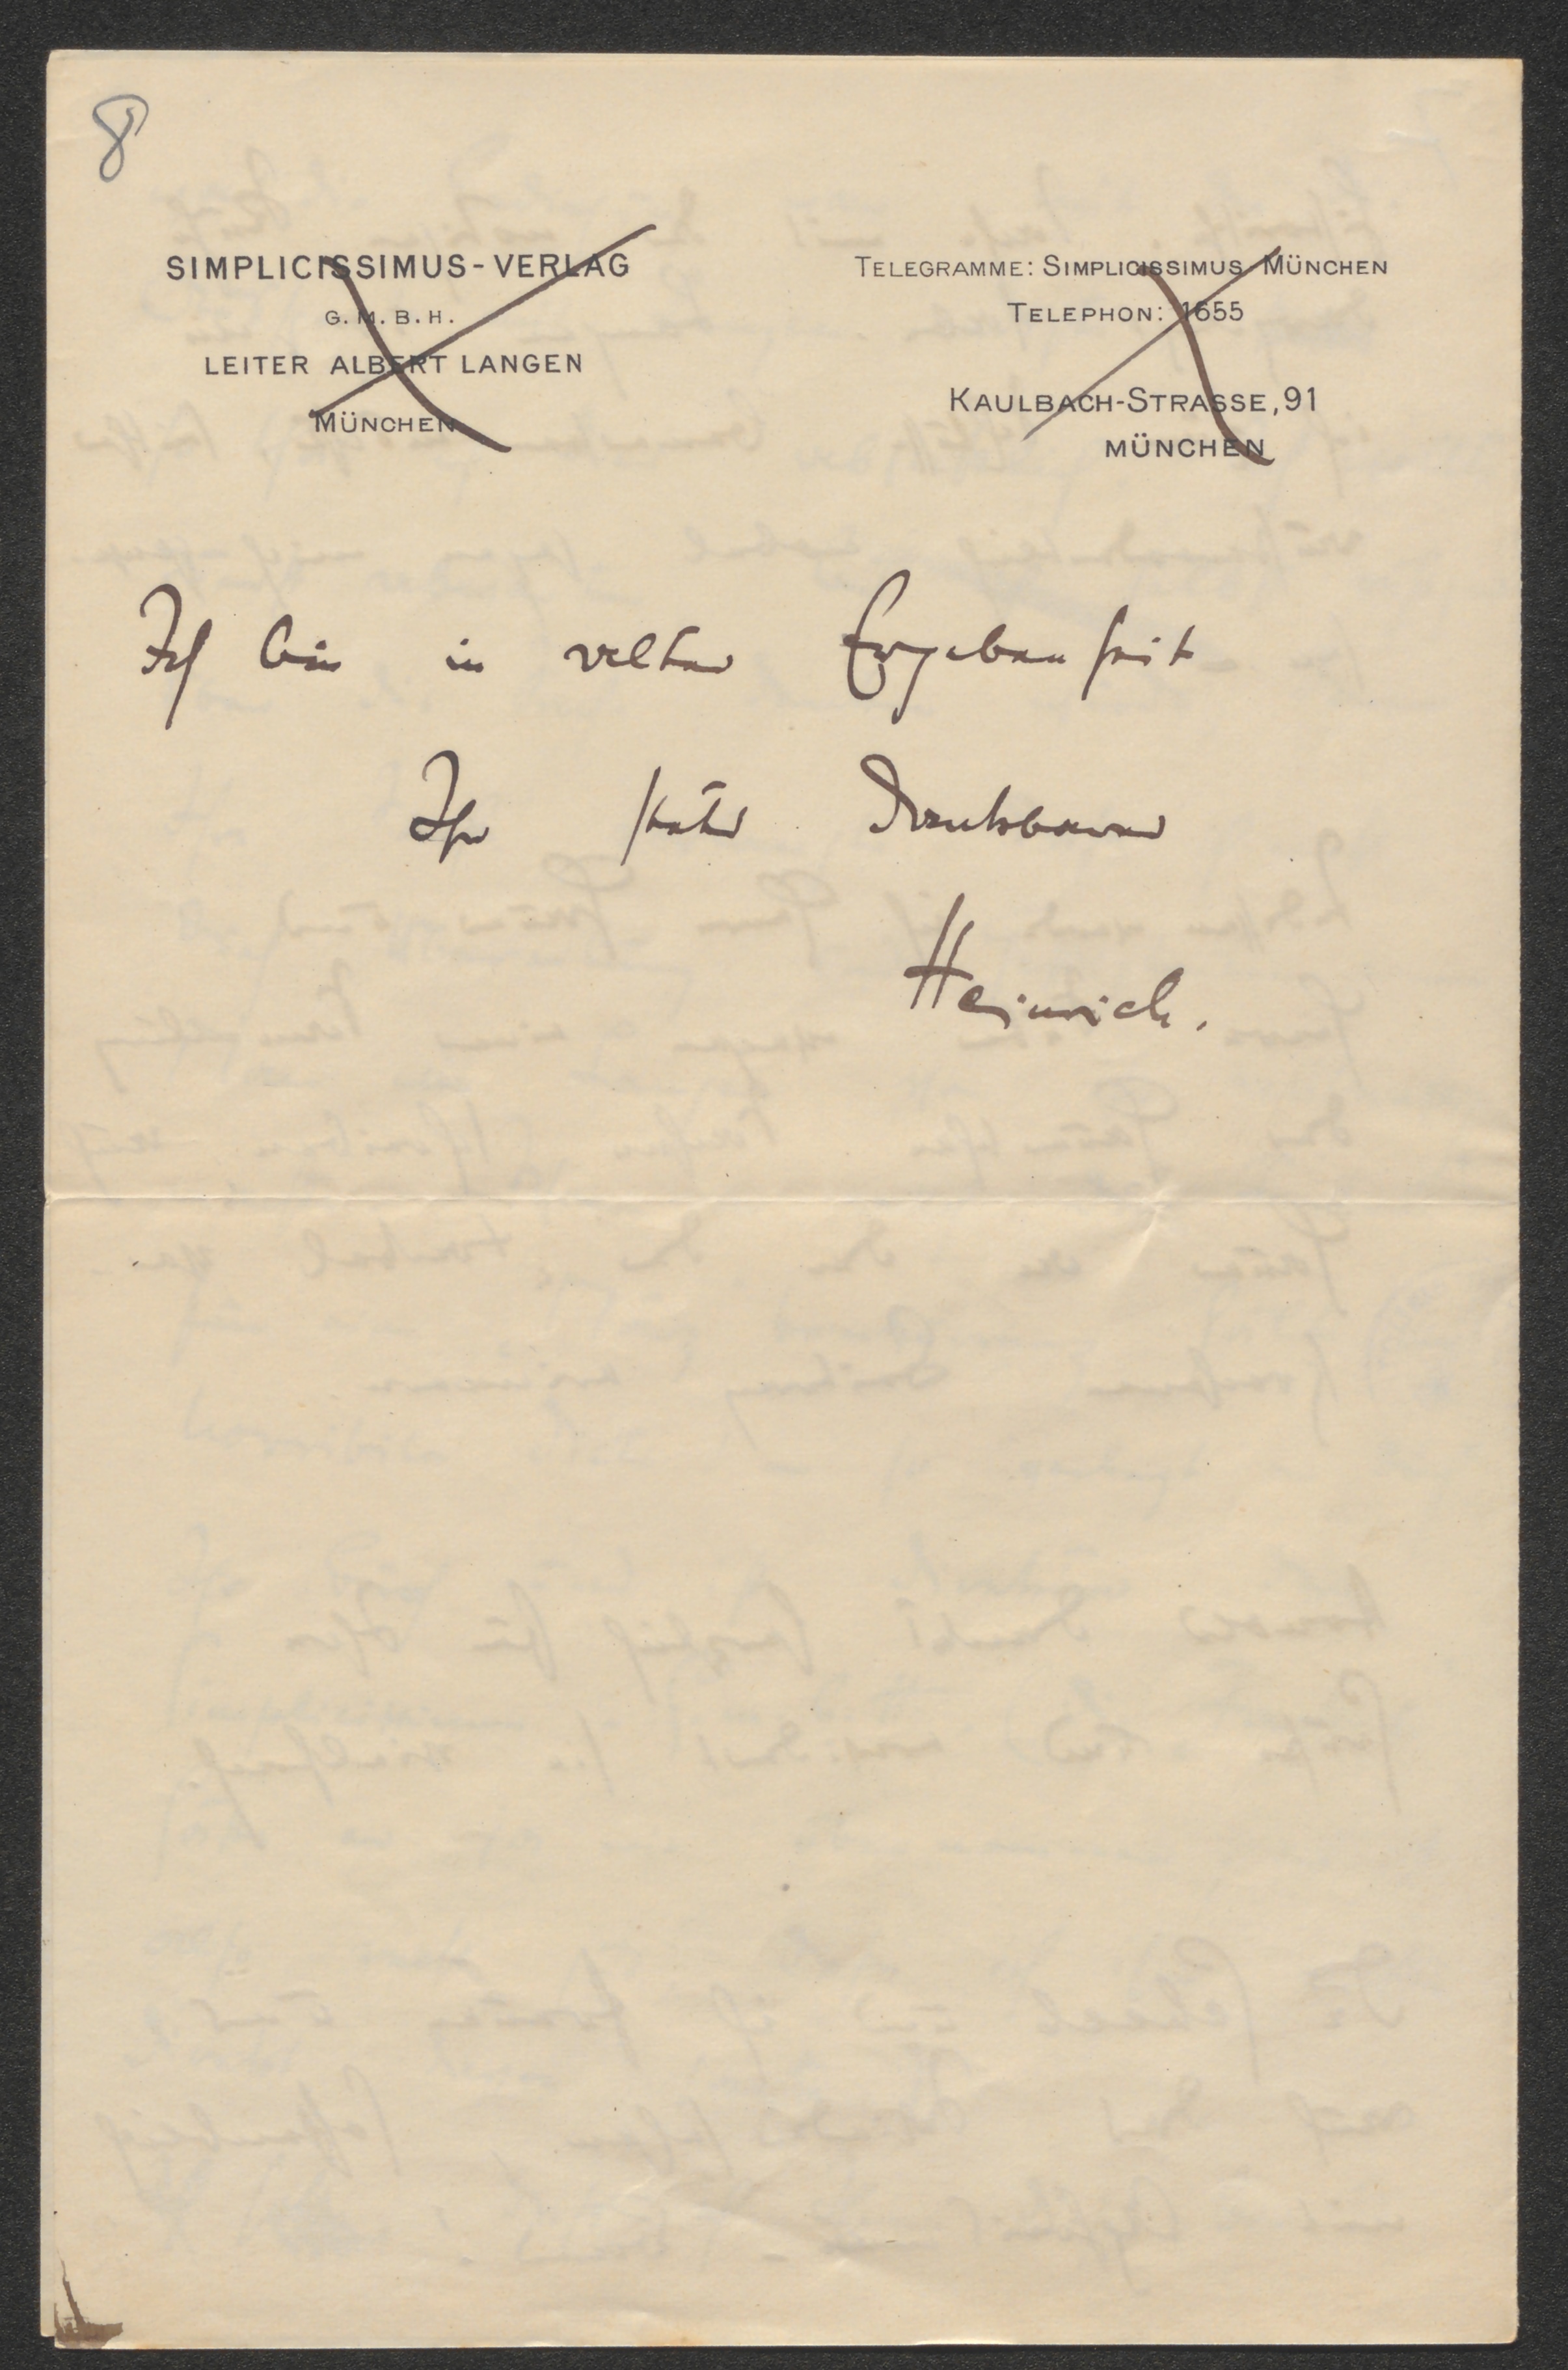 8
SIMPLICISSIMUS-VERLAG
G. M. B. H.
LEITER ALBERT LANGEN
MÜNCHEN
TELEGRAMME: SIMPLICISSIMUS MÜNCHEN
TELEPHON: 1655
KAULBACH-STRASSE, 91
MÜNCHEN
Ich bin in alter Ergebenheit
Ihr stets dankbarer
Heinrich.